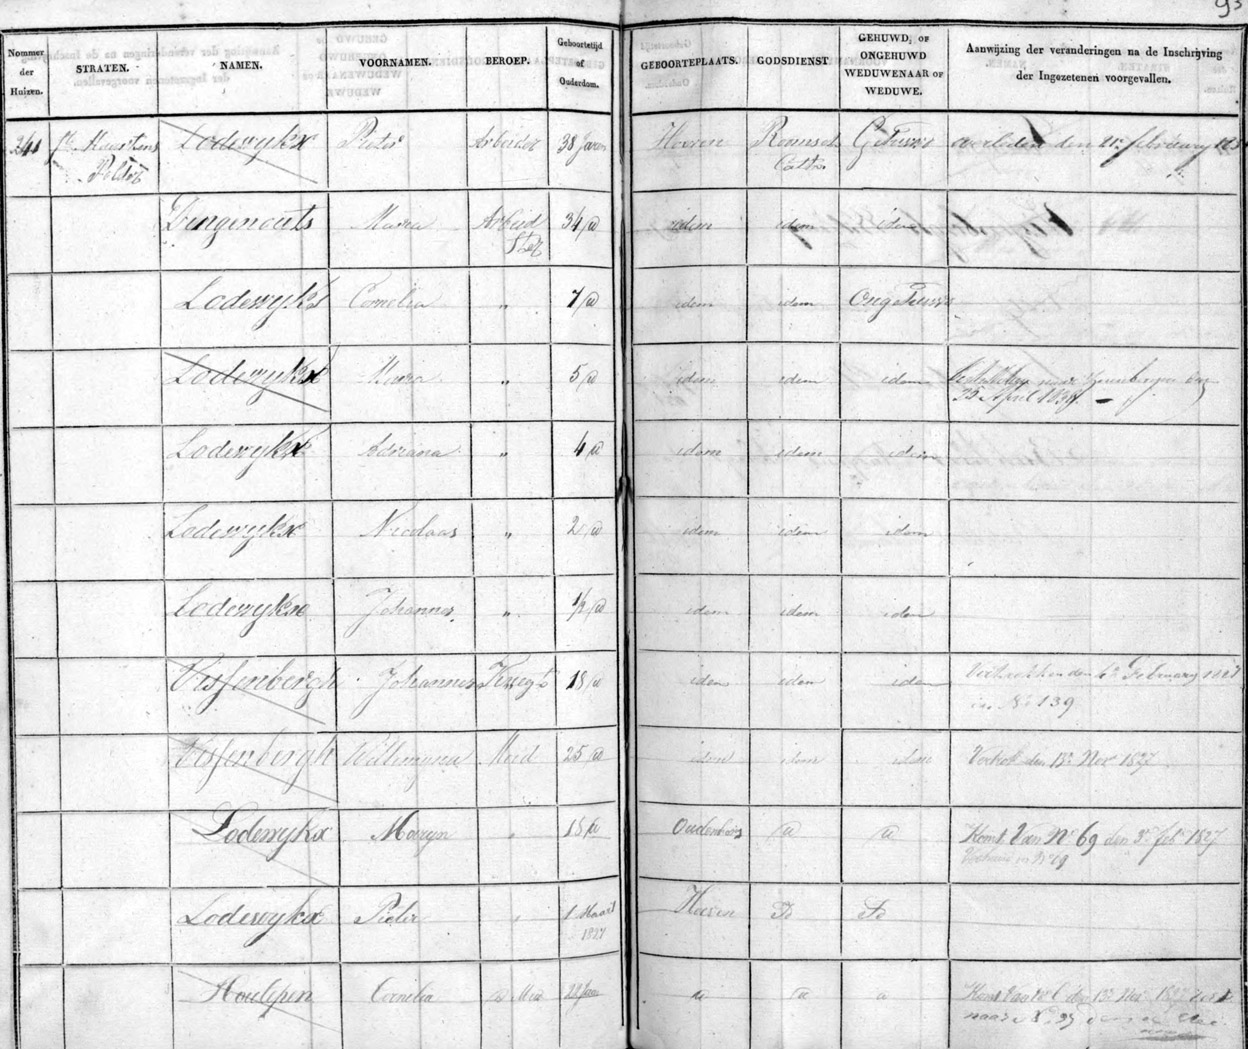 93
Nommer der Huizen. STRATEN. NAMEN. VOORNAMEN. BEROEP. Geboortetijd of Ouderdom. GEBOORTEPLAATS. GODSDIENST. GEHUWD, OF ONGEHUWD WEDUWENAAR OF WEDUWE. Aanwijzing der veranderingen na de Inschrijving der Ingezetenen voorgevallen.
241 St Maartens Polder Lodewykx Pieter Arbeider 38 Jaren Hoeven Roomsch Catth Gehuwd overleden den 21e february
Dingenouts Maria Arbeid Ster 34 id idem idem idem
Lodewykx Cornelia " 7 id idem idem Ongehuwd
Lodewykx Maria " 5 id idem idem idem
25 April
Lodewykx Adriana " 4 id idem idem idem
Lodewykx Nicolaas " 2 id idem idem idem
Lodewykx Johannes " 1/2 id idem idem idem
Vissenbergh Johannes Knegt 18 id idem idem idem Vertrokken den 6e February
in No 139
Vissenbergh Willemyna Meid 25 id idem idem idem Vertrok den 13e Nov 1827
Lodewykx Maryn " 15 id Oudenbosch id id Komt van No 69 den 3e feb 1827
Lodewykx Pieter " 1 Maart 1827 Hoeven Id Id
Cornelia Meid 22 Jaar id id id Komt van No den 13e Nov 1827
naar